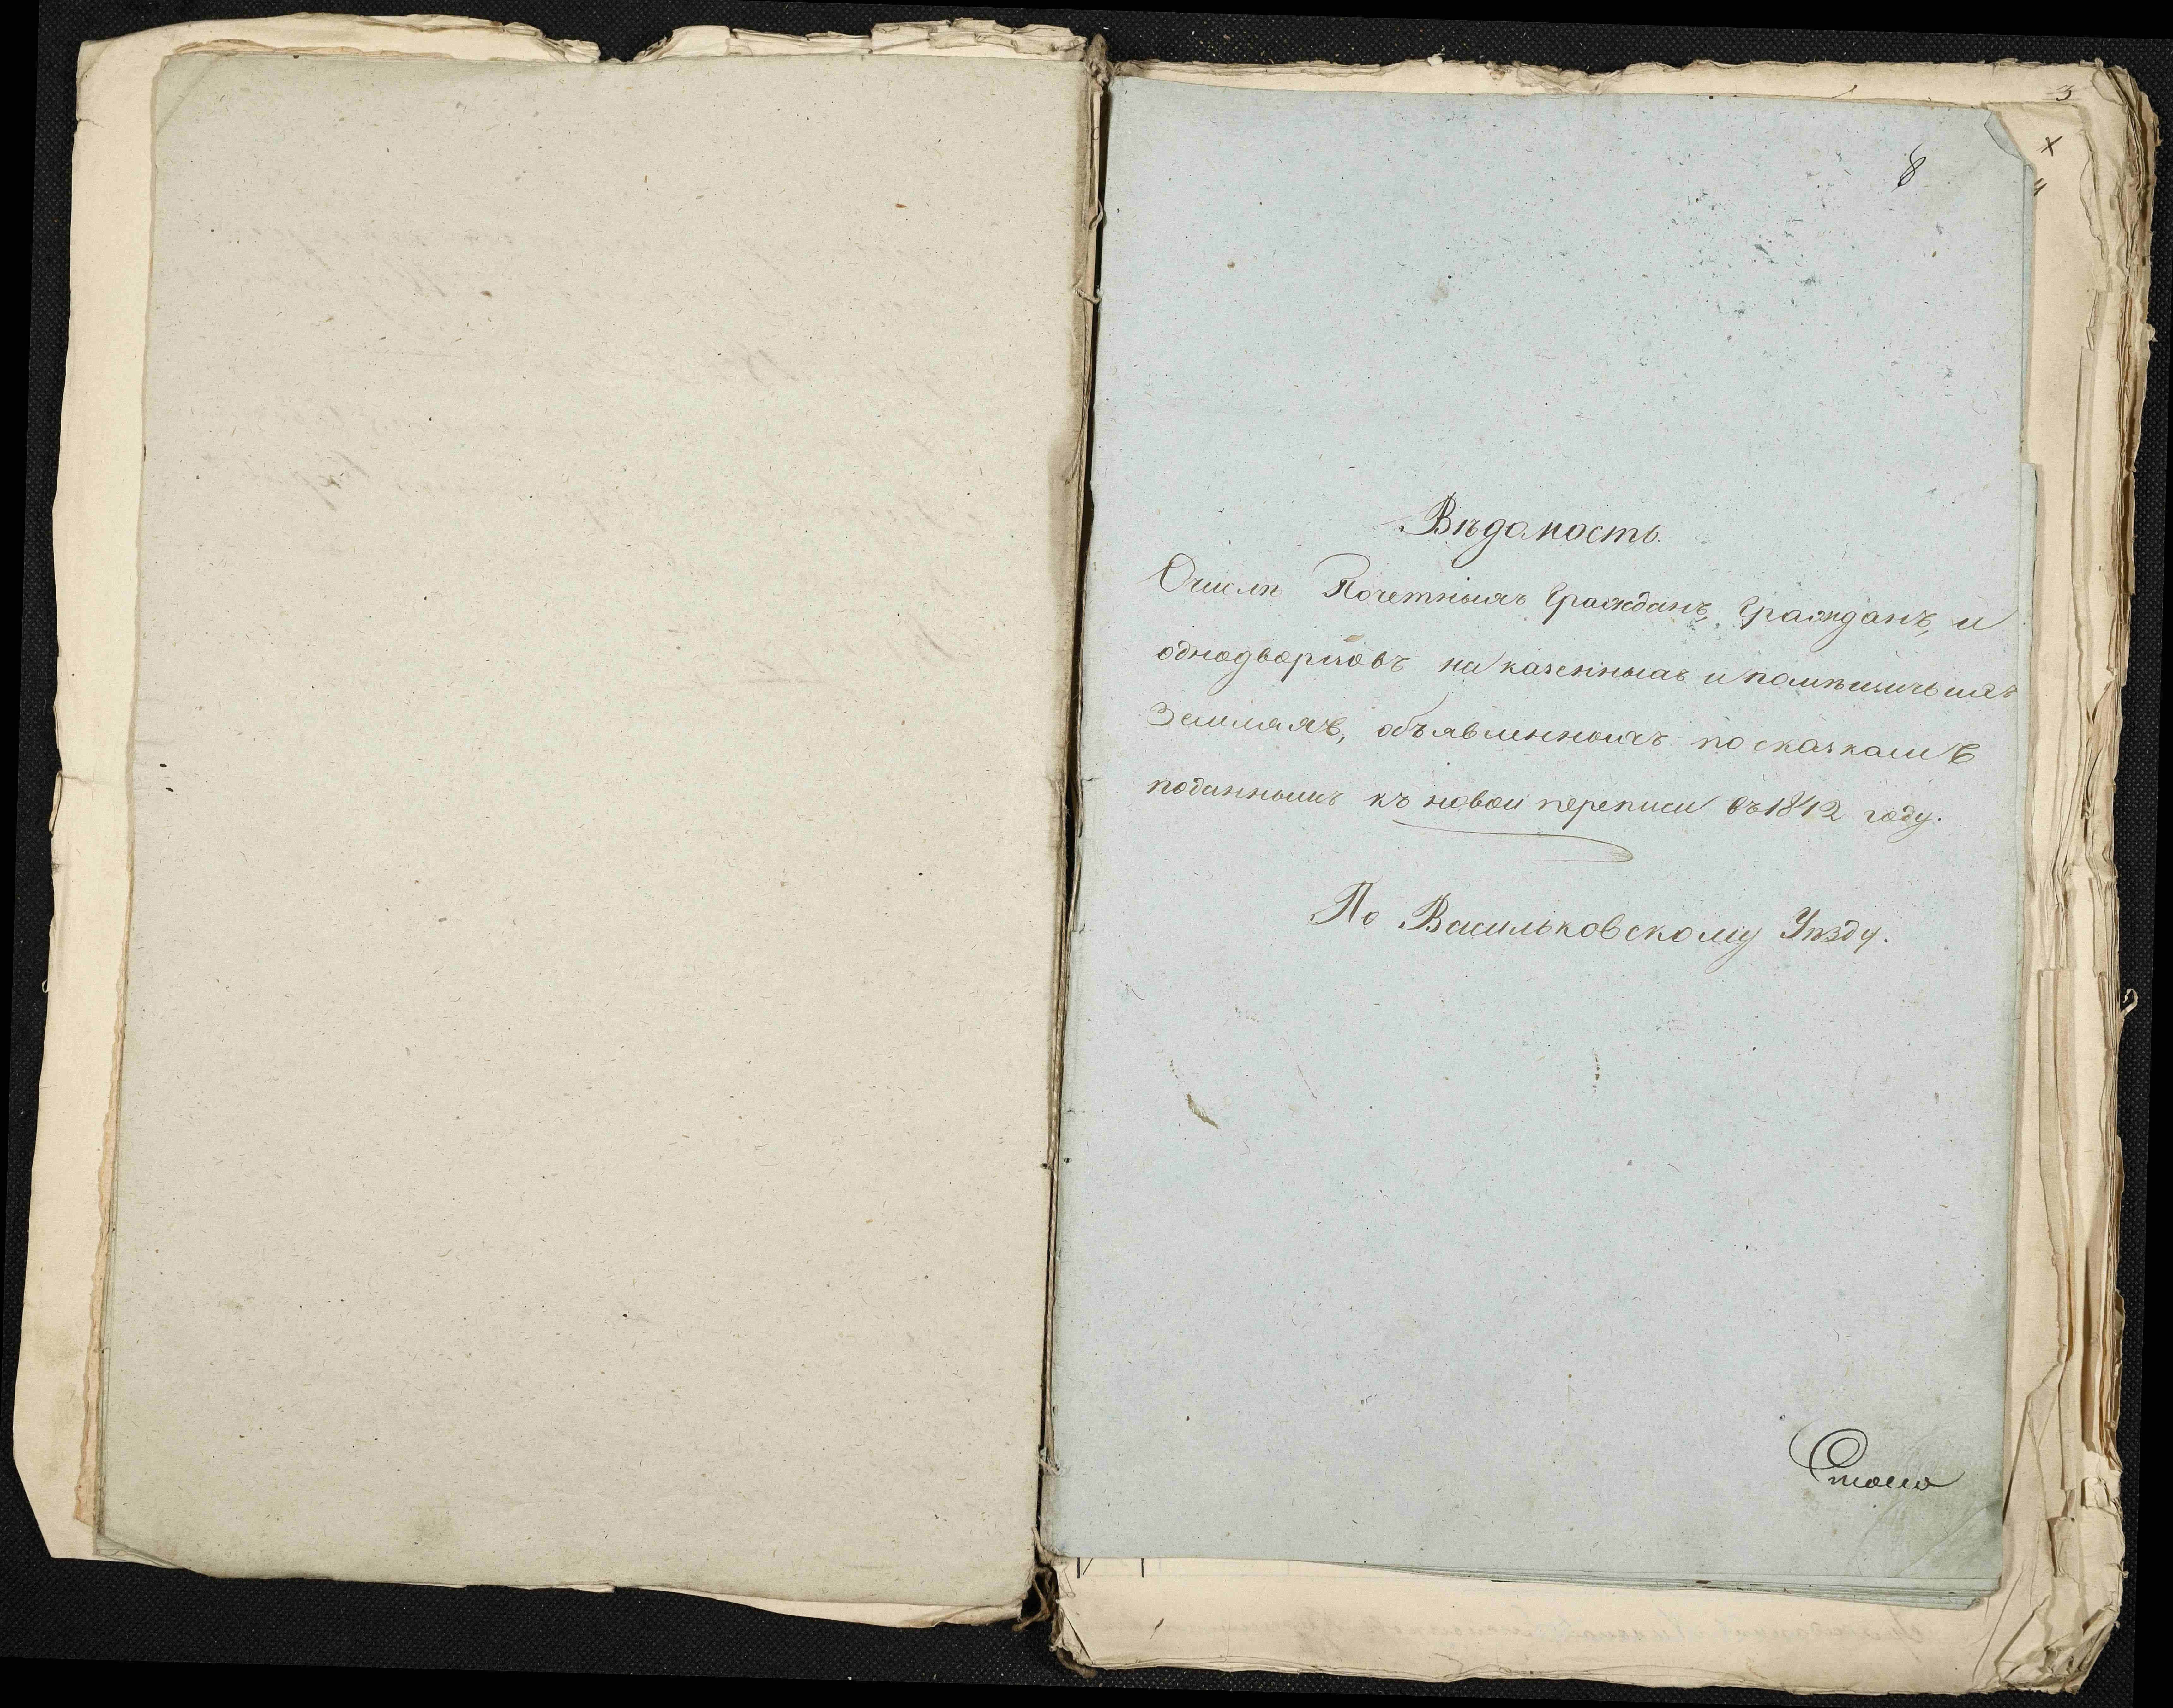 3
8
Вѣдомость.
О числѣ Почетныхъ Гражданъ, Гражданъ, и
однодворцовъ на казенныхъ и помѣщичьихъ
Земляхъ, объявленныхъ по сказкамъ
поданнымъ къ новой переписи въ 1842 году.
По Васильковскому Уѣзду.